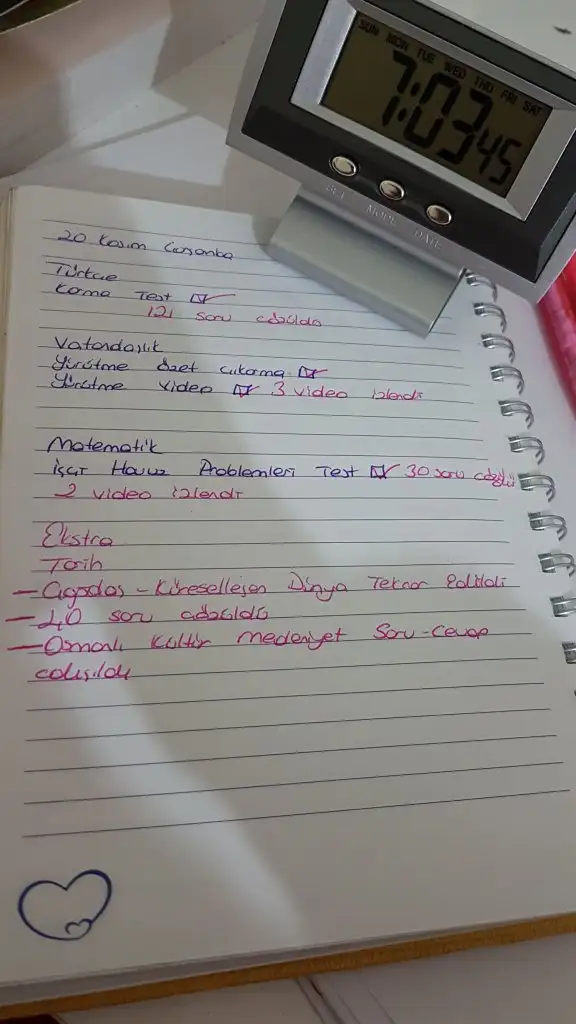 SUN MON TUE WED THU FRI SAT
7:03 45
SET MODE DATE
20 Kasım Çarşamba
Türkçe
Karma Test ☑
121 soru çözüldü
Vatandaşlık
Yürütme özet çıkarma ☑
Yürütme video ☑ 3 video izlendi
Matematik
İşçi Havuz Problemleri Test ☑ 30 soru çözüldü
2 video izlendi
Ekstra
Tarih
— Çağdaş - Küreselleşen Dünya Tekrar Edildi
— 40 soru çözüldü
— Osmanlı Kültür medeniyet Soru-Cevap
çalışıldı